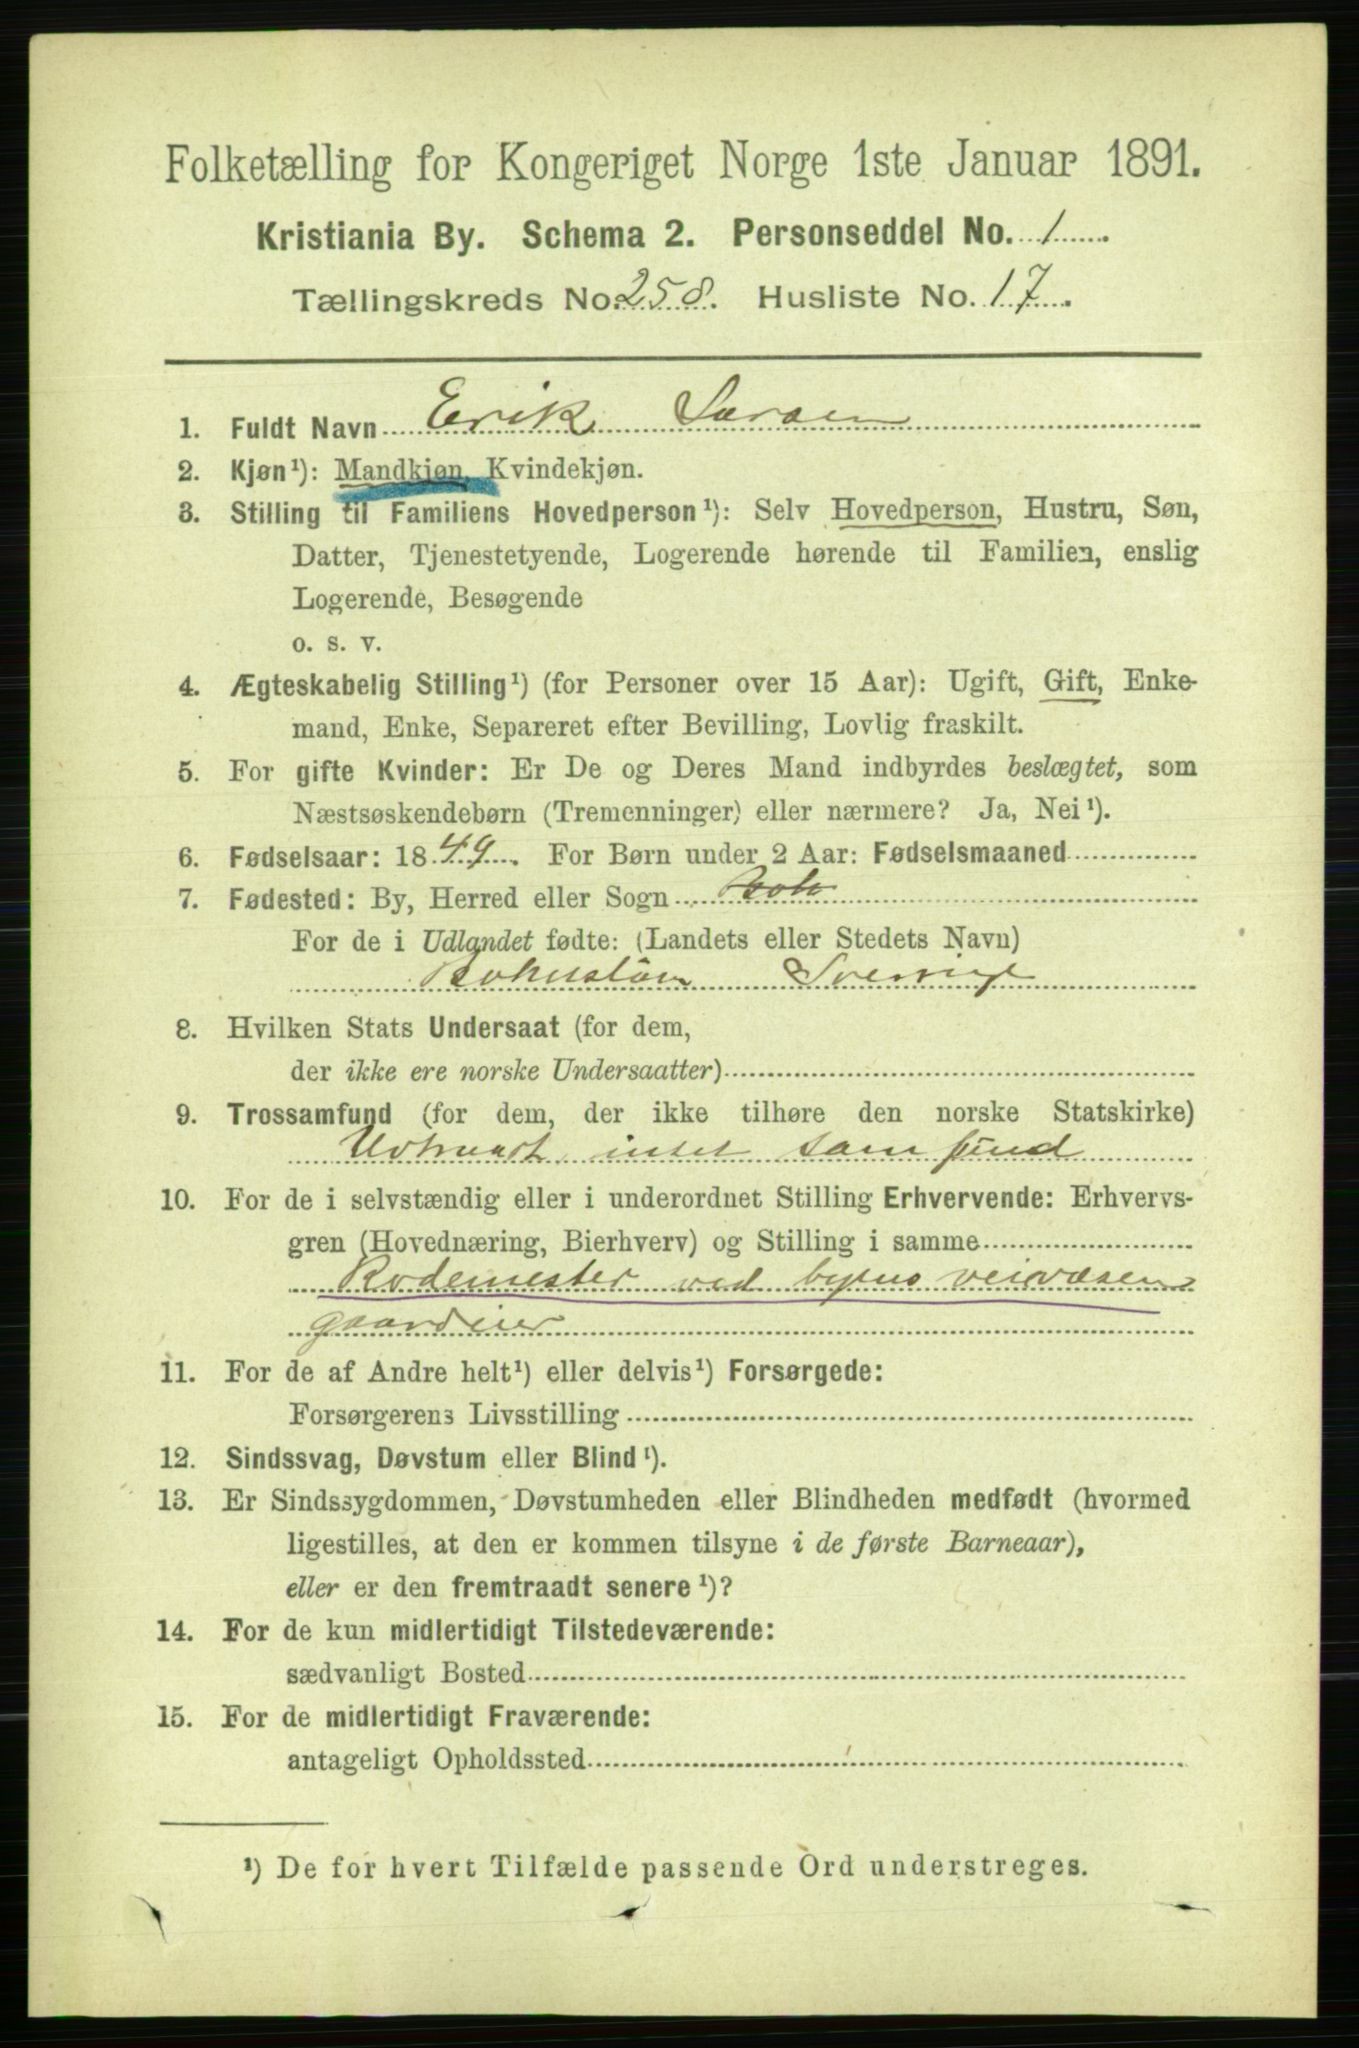 Folketælling for Kongeriget Norge 1ste Januar 1891.
Kristiania By. Schema 2. Personseddel No. 1.
Tællingskreds No. 258. Husliste No. 17.
1. Fuldt Navn Erik Larsen
2. Kjøn¹): Mandkjøn, Kvindekjøn.
3. Stilling til Familiens Hovedperson¹): Selv Hovedperson, Hustru, Søn,
Datter, Tjenestetyende, Logerende hørende til Familien, enslig
Logerende, Besøgende
o. s. v.
4. Ægteskabelig Stilling¹) (for Personer over 15 Aar): Ugift, Gift, Enke-
mand, Enke, Separeret efter Bevilling, Lovlig fraskilt.
5. For gifte Kvinder: Er De og Deres Mand indbyrdes beslægtet, som
Næstsøskendebørn (Tremenninger) eller nærmere? Ja, Nei¹).
6. Fødselsaar: 1849. For Børn under 2 Aar: Fødselsmaaned
7. Fødested: By, Herred eller Sogn
For de i Udlandet fødte: (Landets eller Stedets Navn)
Bohuslän Sverrige
8. Hvilken Stats Undersaat (for dem,
der ikke ere norske Undersaatter)
9. Trossamfund (for dem, der ikke tilhøre den norske Statskirke)
Udtraadt intet samfund
10. For de i selvstændig eller i underordnet Stilling Erhvervende: Erhvervs-
gren (Hovednæring, Bierhverv) og Stilling i samme
Rodemester ved byens veivæsen
gaardeier
11. For de af Andre helt¹) eller delvis¹) Forsørgede:
Forsørgerens Livsstilling
12. Sindssvag, Døvstum eller Blind¹).
13. Er Sindssygdommen, Døvstumheden eller Blindheden medfødt (hvormed
ligestilles, at den er kommen tilsyne i de første Barneaar),
eller er den fremtraadt senere¹)?
14. For de kun midlertidigt Tilstedeværende:
sædvanligt Bosted
15. For de midlertidigt Fraværende:
antageligt Opholdssted
¹) De for hvert Tilfælde passende Ord understreges.